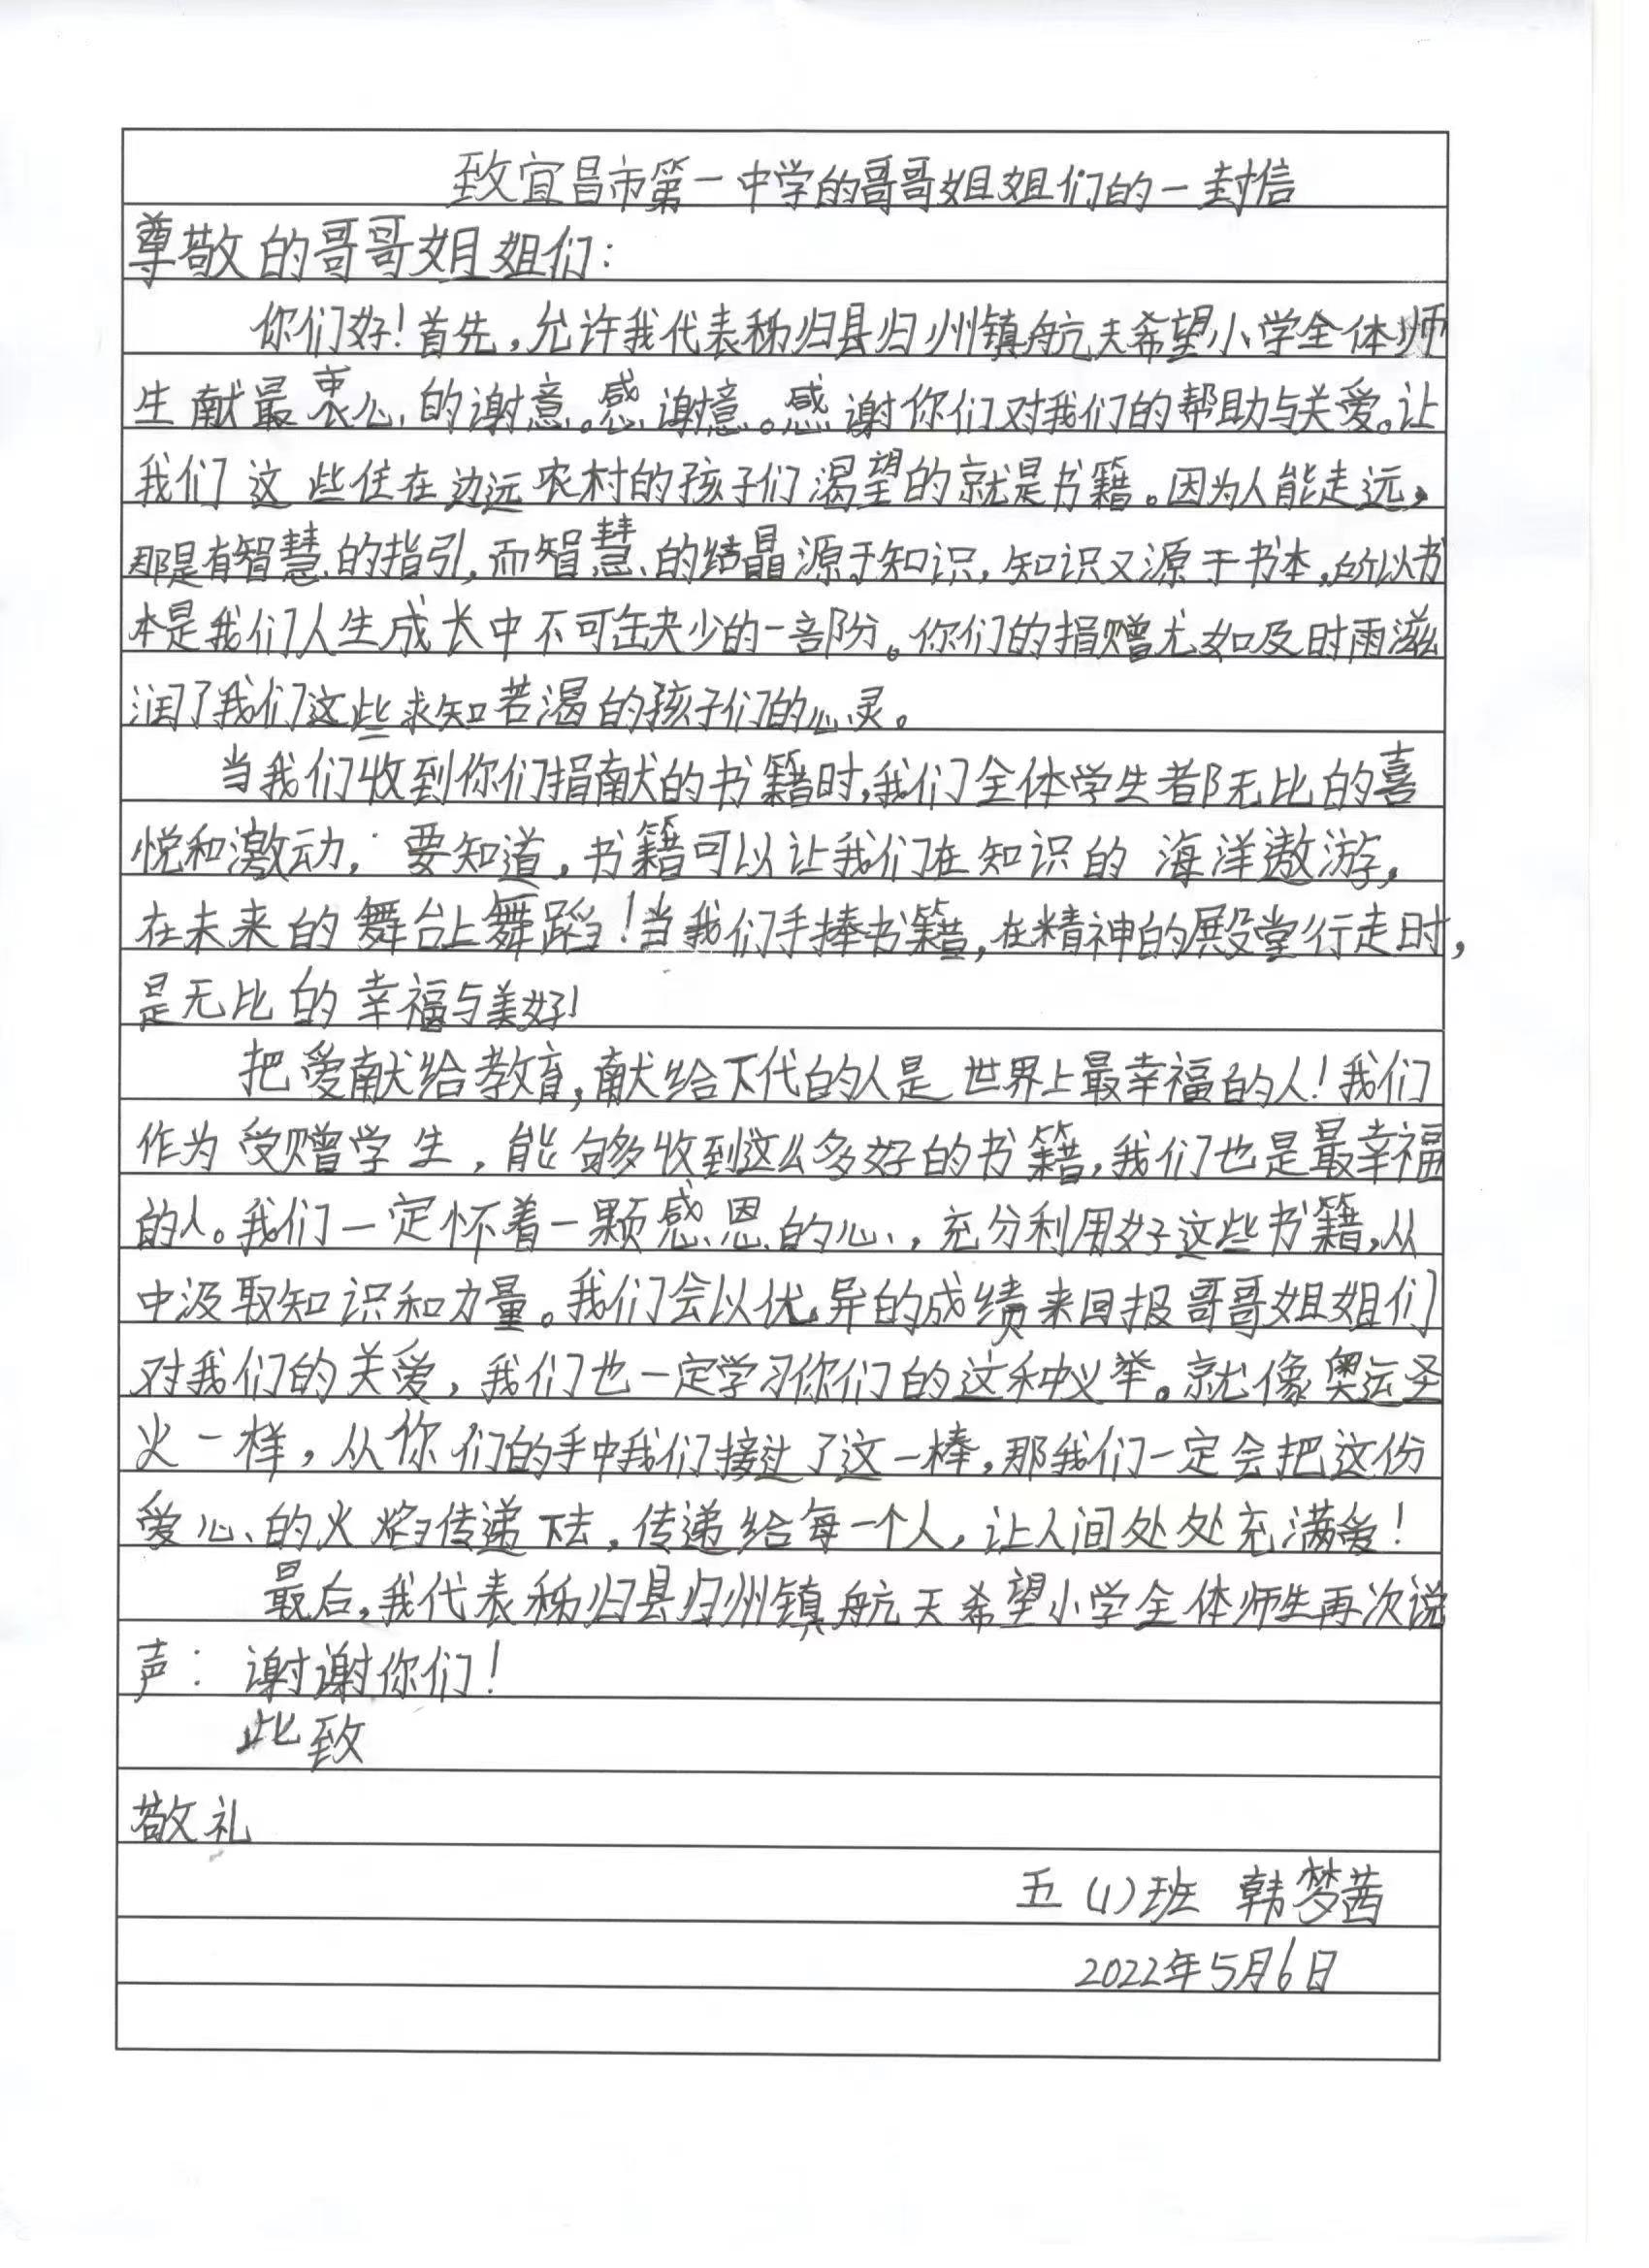 致宜昌市第一中学的哥哥姐姐们的一封信
尊敬的哥哥姐姐们：
你们好！首先，允许我代表秭归县归州镇航天希望小学全体师
生献最衷心的谢意。感谢意。感谢你们对我们的帮助与关爱。让
我们这些住在边远农村的孩子们渴望的就是书籍。因为人能走远，
那是有智慧的指引，而智慧的结晶源于知识，知识又源于书本，所以书
本是我们人生成长中不可缺少的一部份。你们的捐赠尤如及时雨滋
润了我们这些求知若渴的孩子们的心灵。
当我们收到你们捐献的书籍时，我们全体学生都无比的喜
悦和激动，要知道，书籍可以让我们在知识的海洋遨游，
在未来的舞台上舞蹈！当我们手捧书籍，在精神的殿堂行走时，
是无比的幸福与美好！
把爱献给教育，献给下代的人是世界上最幸福的人！我们
作为受赠学生，能够收到这么多好的书籍，我们也是最幸福
的人。我们一定怀着一颗感恩的心，充分利用好这些书籍，从
中汲取知识和力量。我们会以优异的成绩来回报哥哥姐姐们
对我们的关爱，我们也一定学习你们的这种义举。就像奥运圣
火一样，从你们的手中我们接过了这一棒，那我们一定会把这份
爱心的火焰传递下去，传递给每一个人，让人间处处充满爱！
最后，我代表秭归县归州镇航天希望小学全体师生再次说
声：谢谢你们！
此致
敬礼
五（1）班 韩梦茜
2022年5月6日